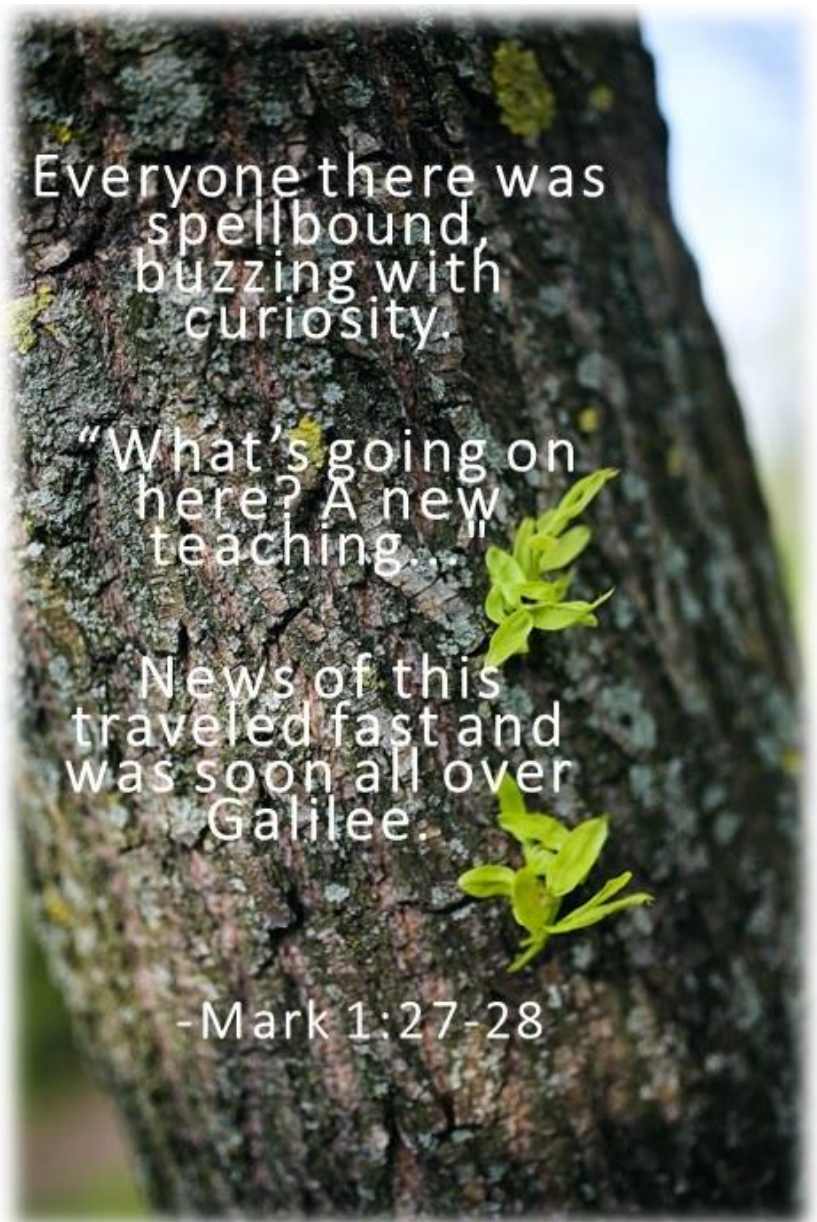 Everyone there was
spellbound,
buzzing with
curiosity.
“What’s going on
here? A new
teaching..."
News of this
traveled fast and
was soon all over
Galilee.
-Mark 1:27-28